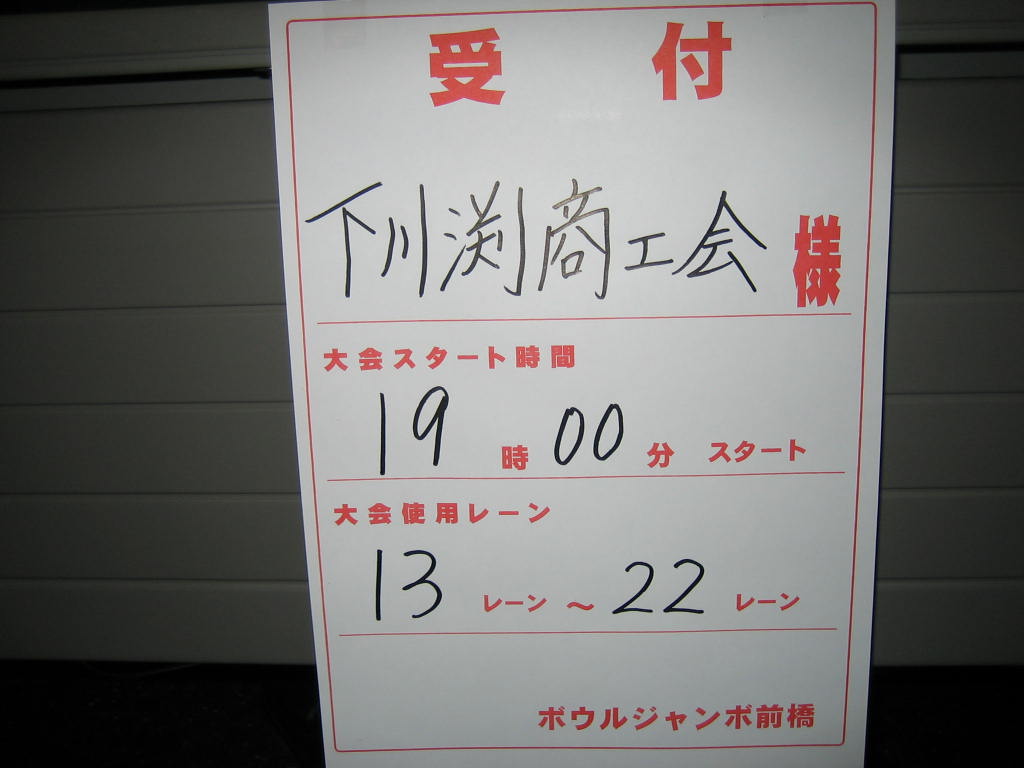 受付
下川渕商工会様
大会スタート時間
19時00分スタート
大会使用レーン
13レーン～22レーン
ボウルジャンボ前橋